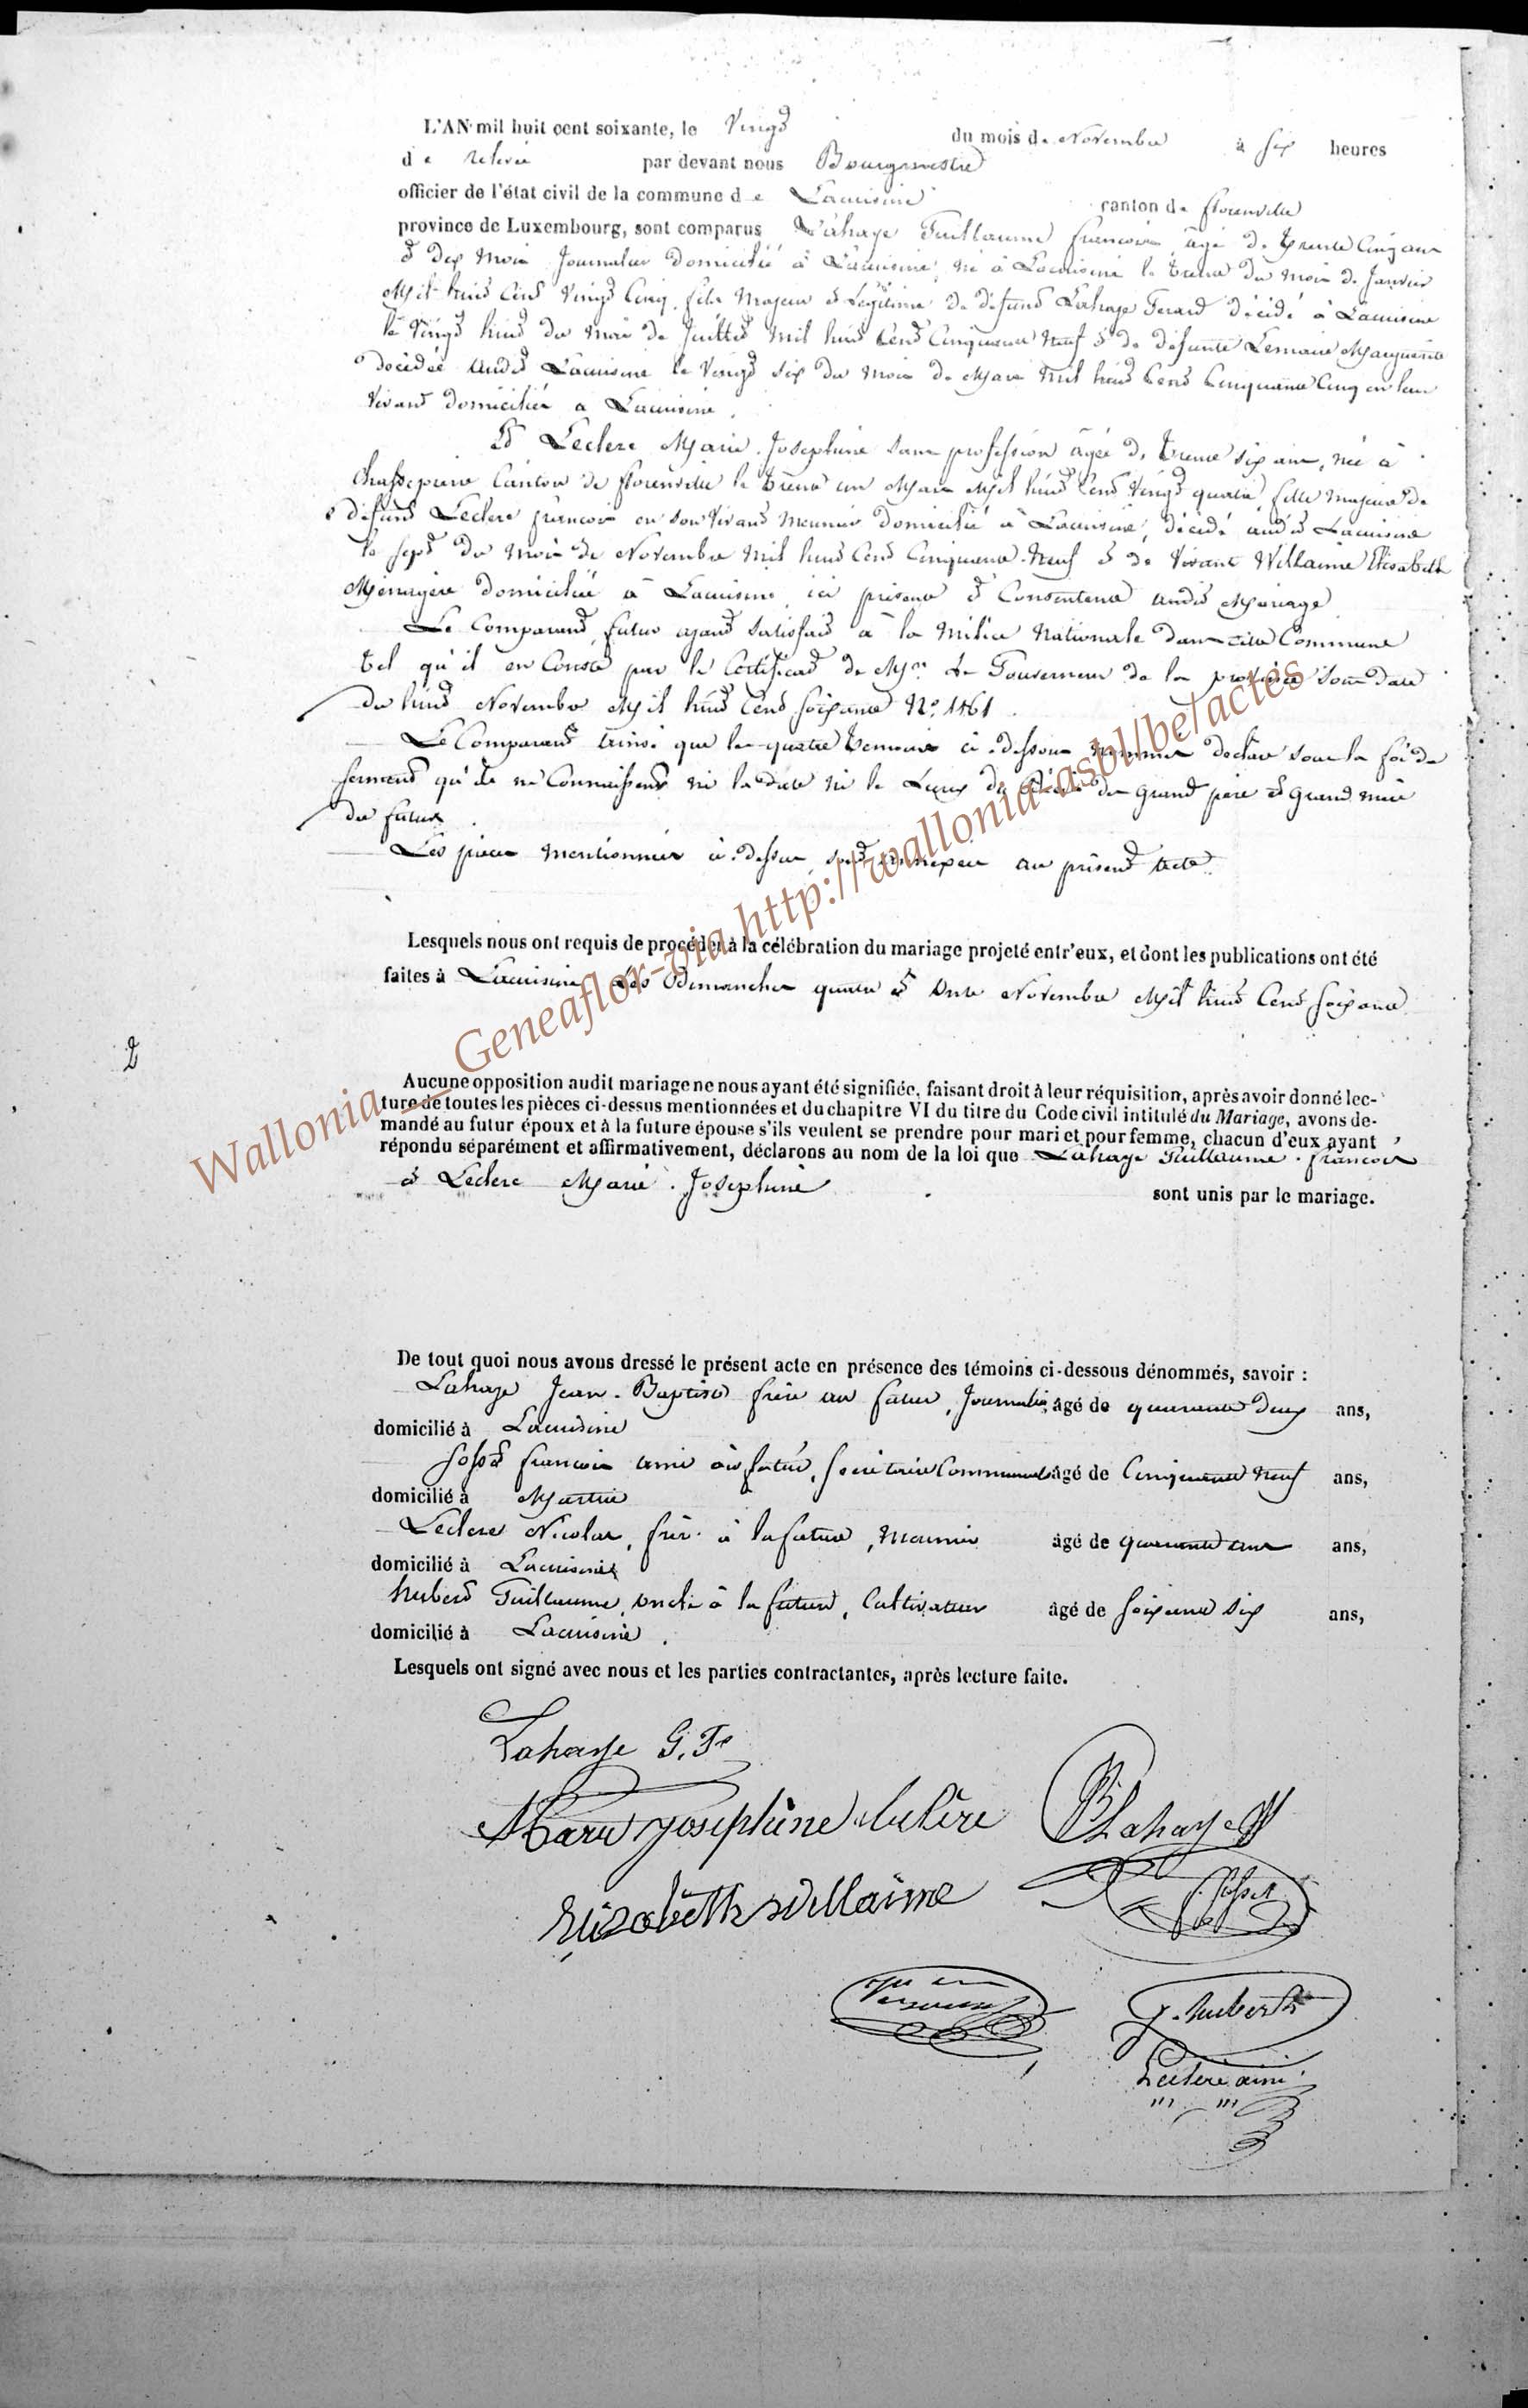 L'AN mil huit cent soixante, le Vingt du mois de Novembre à six heures
de relevée par devant nous Bourgmestre
officier de l'état civil de la commune de Lacuisine canton de florenville
province de Luxembourg, sont comparus Lahaye Guillaume francois, âgé de trente Cinq ans
et dix Mois Journalier domicilié à Lacuisine, né à Lacuisine le trente du mois de Janvier
Mil huit Cent Vingt Cinq, fils Majeur et Légitime de défunt Lahaye Gerard décédé à Lacuisine
le Vingt huit du Mois de Juillet Mil huit Cent Cinquante Neuf et de défunte Lemaire Marguerite
décédée audit Lacuisine le Vingt six du Mois de Mars Mil huit Cent Cinquante Cinq en leur
Vivant domiciliés a Lacuisine.
Et Leclere Marie Josephine sans profession âgée de trente six ans, née à
Chassepierre Canton de florenville le trente un Mars Mil huit Cent Vingt quatre fille Majeure de
défunt Leclere francois en son Vivant Meunier domicilié à Lacuisine, décédé audit Lacuisine
le sept du Mois de Novembre Mil huit Cent Cinquante Neuf et de Vivante Willaime Elisabeth
Ménagère domiciliée à Lacuisine, ici présente et Consentante audit Mariage
Le Comparant futur ayant satisfait à la Milice Nationale dans cette Commune
tel qu'il en Conste par le Certificat de Mr. Le Gouverneur de la province sous date
du huit Novembre Mil huit Cent soixante No. 1461.
Le Comparant ainsi que les quatre temoins ci-dessous nommés declare sous la foi de
serment qu'ils ne Connaissent ni la date ni le Lieux du décès des Grand père et Grand mère
du futur.
Les pièces mentionnées ci-dessus sont annexées au présent acte.
Lesquels nous ont requis de procéder à la célébration du mariage projeté entr'eux, et dont les publications ont été
faites à Lacuisine Les Dimanches quatre et onze Novembre Mil huit Cent soixante
2
Aucune opposition audit mariage ne nous ayant été signifiée, faisant droit à leur réquisition, après avoir donné lec-
ture de toutes les pièces ci-dessus mentionnées et du chapitre VI du titre du Code civil intitulé du Mariage, avons de-
mandé au futur époux et à la future épouse s'ils veulent se prendre pour mari et pour femme, chacun d'eux ayant
répondu séparément et affirmativement, déclarons au nom de la loi que Lahaye Guillaume francois
et Leclere Marie Josephine sont unis par le mariage.
De tout quoi nous avons dressé le présent acte en présence des témoins ci-dessous dénommés, savoir :
Lahaye Jean-Baptiste frère au futur, Journalier, âgé de quarante deux ans,
domicilié à Lacuisine
Josset francois ami au futur, secrétaire Communal âgé de Cinquante Neuf ans,
domicilié à Martué
Leclere Nicolas, frère à la future, Meunier âgé de quarante ans ans,
domicilié à Lacuisine
hubert Guillaume, oncle à la future, Cultivateur âgé de soixante six ans,
domicilié à Lacuisine.
Lesquels ont signé avec nous et les parties contractantes, après lecture faite.
Lahaye G. Fs
Marie Josephine leclère
JB Lahaye
Elizabeth Willaime
f. Josset
g. hubert
Leclere ainé
Wallonia__Geneaflor-via http://wallonia-asbl/be/actes